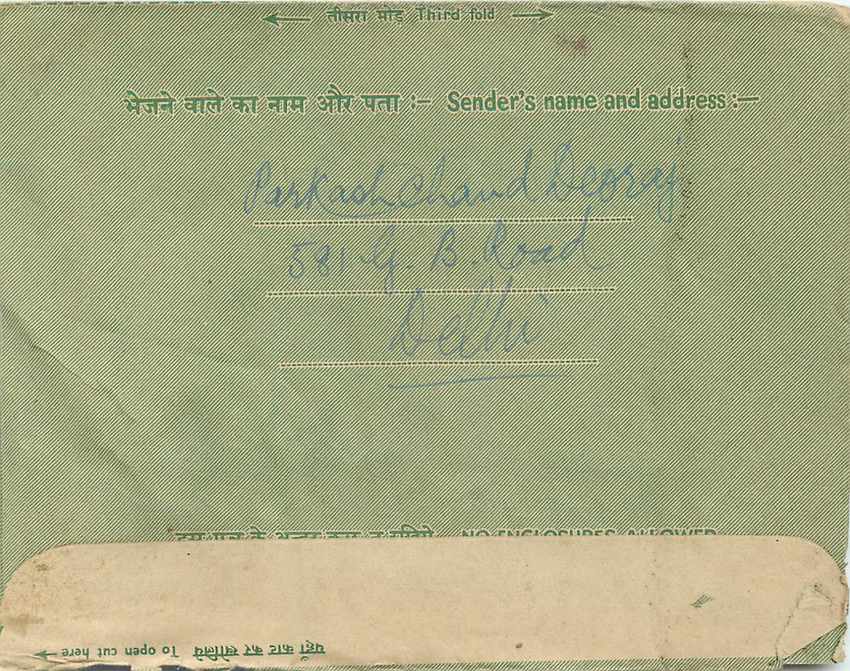 तीसरा मोड़ Third fold
भेजने वाले का नाम और पता :— Sender's name and address :—
Parkash Chand Deoraj
581 G. B. Road
Delhi
इस पत्र के अन्दर कुछ न रखिये NO ENCLOSURES ALLOWED
यहाँ काट कर खोलिये To open cut here